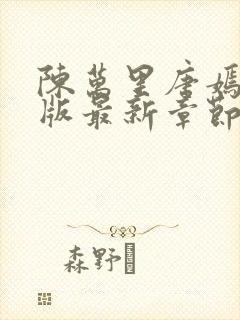 陳萬里唐嫣
版最新章節
森野